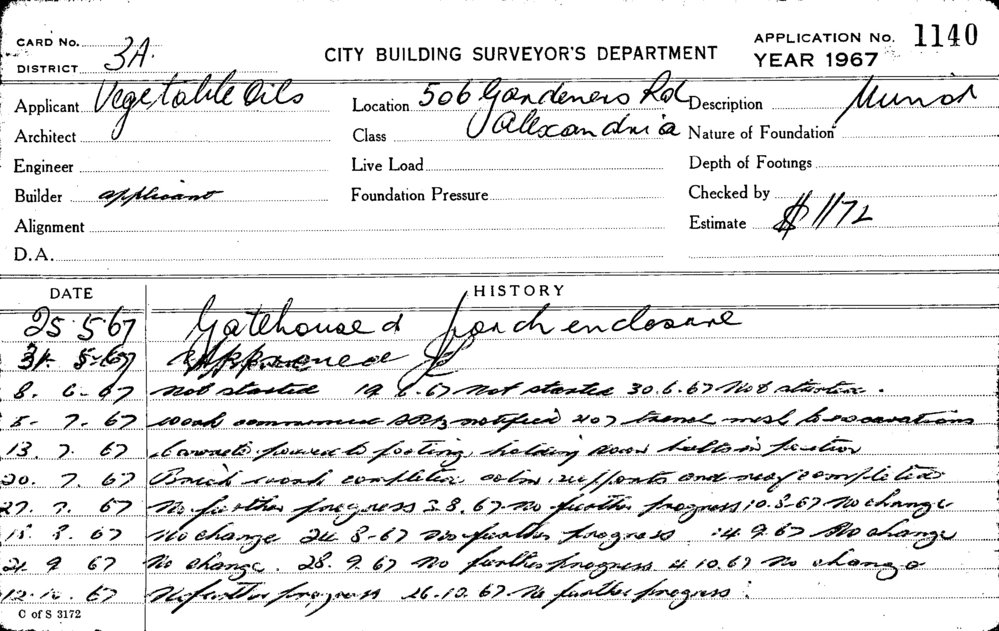 CARD No.
DISTRICT 3A.
CITY BUILDING SURVEYOR'S DEPARTMENT
APPLICATION No. 1140
YEAR 1967
Applicant Vegetable Oils
Location 506 Gardeners Rd
Description
Architect
Class Alexandria
Nature of Foundation
Engineer
Live Load
Depth of Footings
Builder applicant
Foundation Pressure
Checked by
Alignment
Estimate $1172
D.A.
DATE HISTORY
25 5 67 Gatehouse & porch enclosure
31. 5-67 Approved
8. 6-67 Not started 19 6.67 Not started 30.6.67 Not started.
5- 7. 67 work commenced notified trench mesh to excavations
13. 7. 67 Concrete poured to footing, holding down bolts in position
20. 7. 67 Brick work completed supports and roof completed
27. 7. 67 No further progress 3.8.67 No further progress 10.8-67 No change
8. 67 No change 24 8-67 No further progress 14 9.67 No change
21. 9 67 No change. 28. 9.67 No further progress 4.10.67 No change
12.10. 67 No further progress 26.10.67 No further progress.
C of S 3172